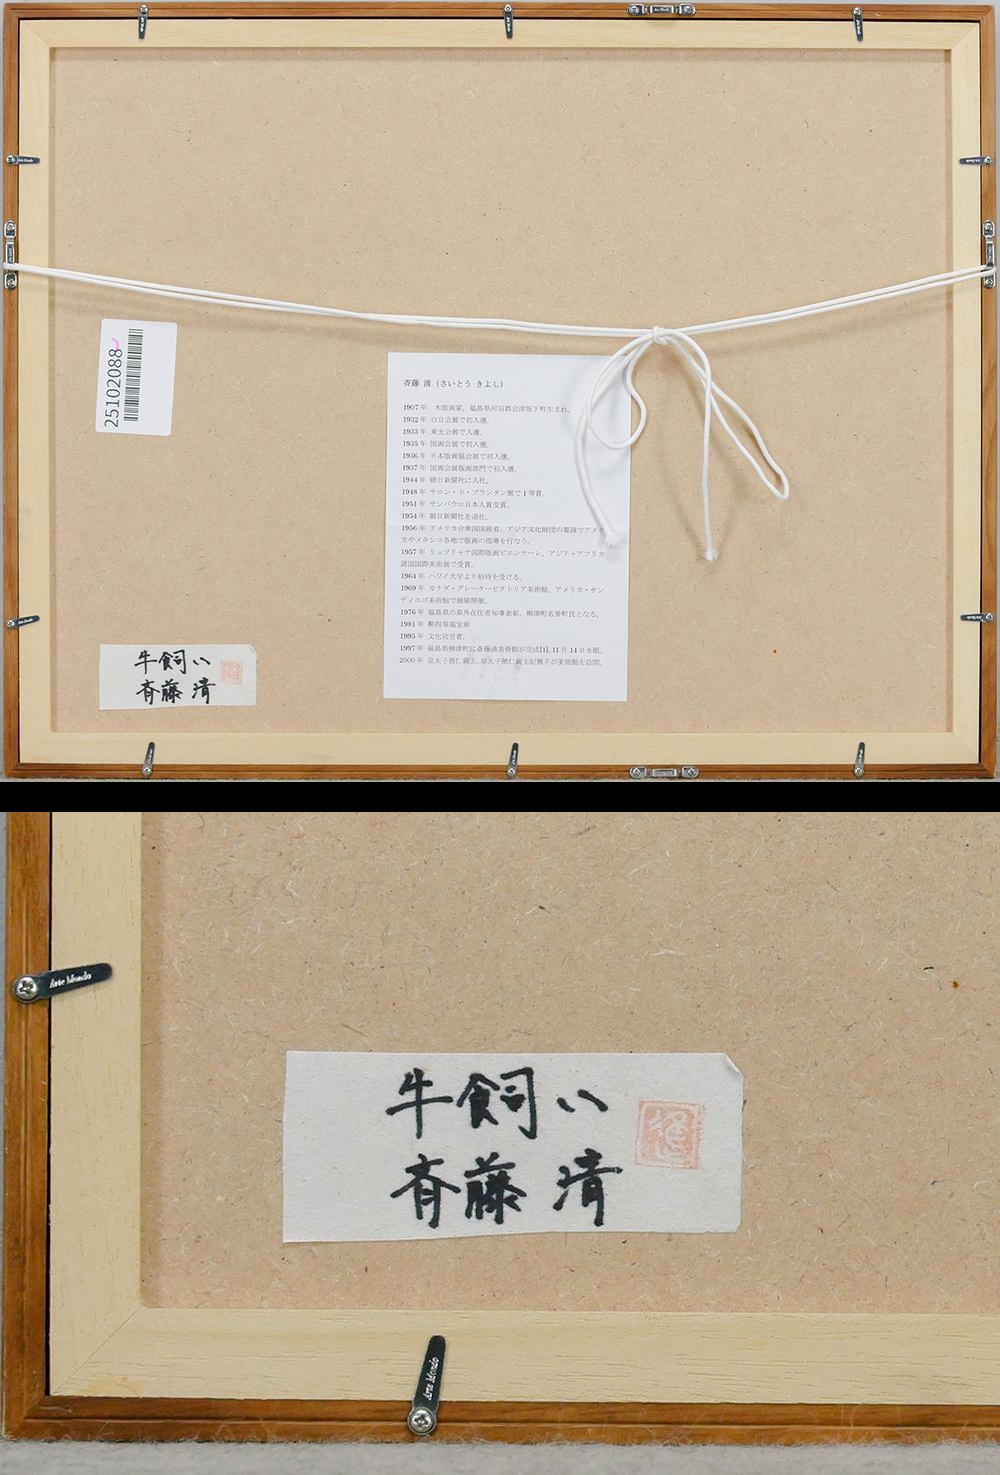 25102088
斉藤 清（さいとう きよし）
1907年 木版画家。福島県河沼郡会津坂下町生まれ。
1932年 白日会展で初入選。
1933年 東光会展で入選。
1935年 国画会展で初入選。
1936年 日本版画協会展で初入選。
1937年 国画会展版画部門で初入選。
1944年 朝日新聞社に入社。
1948年 サロン・ド・プランタン展で1等賞。
1951年 サンパウロ日本人賞受賞。
1954年 朝日新聞社を退社。
1956年 アメリカ合衆国国務省、アジア文化財団の要請でアメリ
カやメキシコ各地で版画の指導を行なう。
1957年 リュブリャナ国際版画ビエンナーレ、アジア・アフリカ
諸国国際美術展で受賞。
1964年 ハワイ大学より招待を受ける。
1969年 カナダ・グレータービクトリア美術館、アメリカ・サン
ディエゴ美術館で個展開催。
1976年 福島県の県外在住者知事表彰。柳津町名誉町民となる。
1981年 勲四等瑞宝章
1995年 文化功労者。
1997年 福島県柳津町に斎藤清美術館が完成 11月14日永眠。
2000年 皇太子徳仁親王、皇太子徳仁親王妃雅子が美術館を訪問。
牛飼い
斉藤 清
Arte Mondo
牛飼い
斉藤 清
Arte Mondo